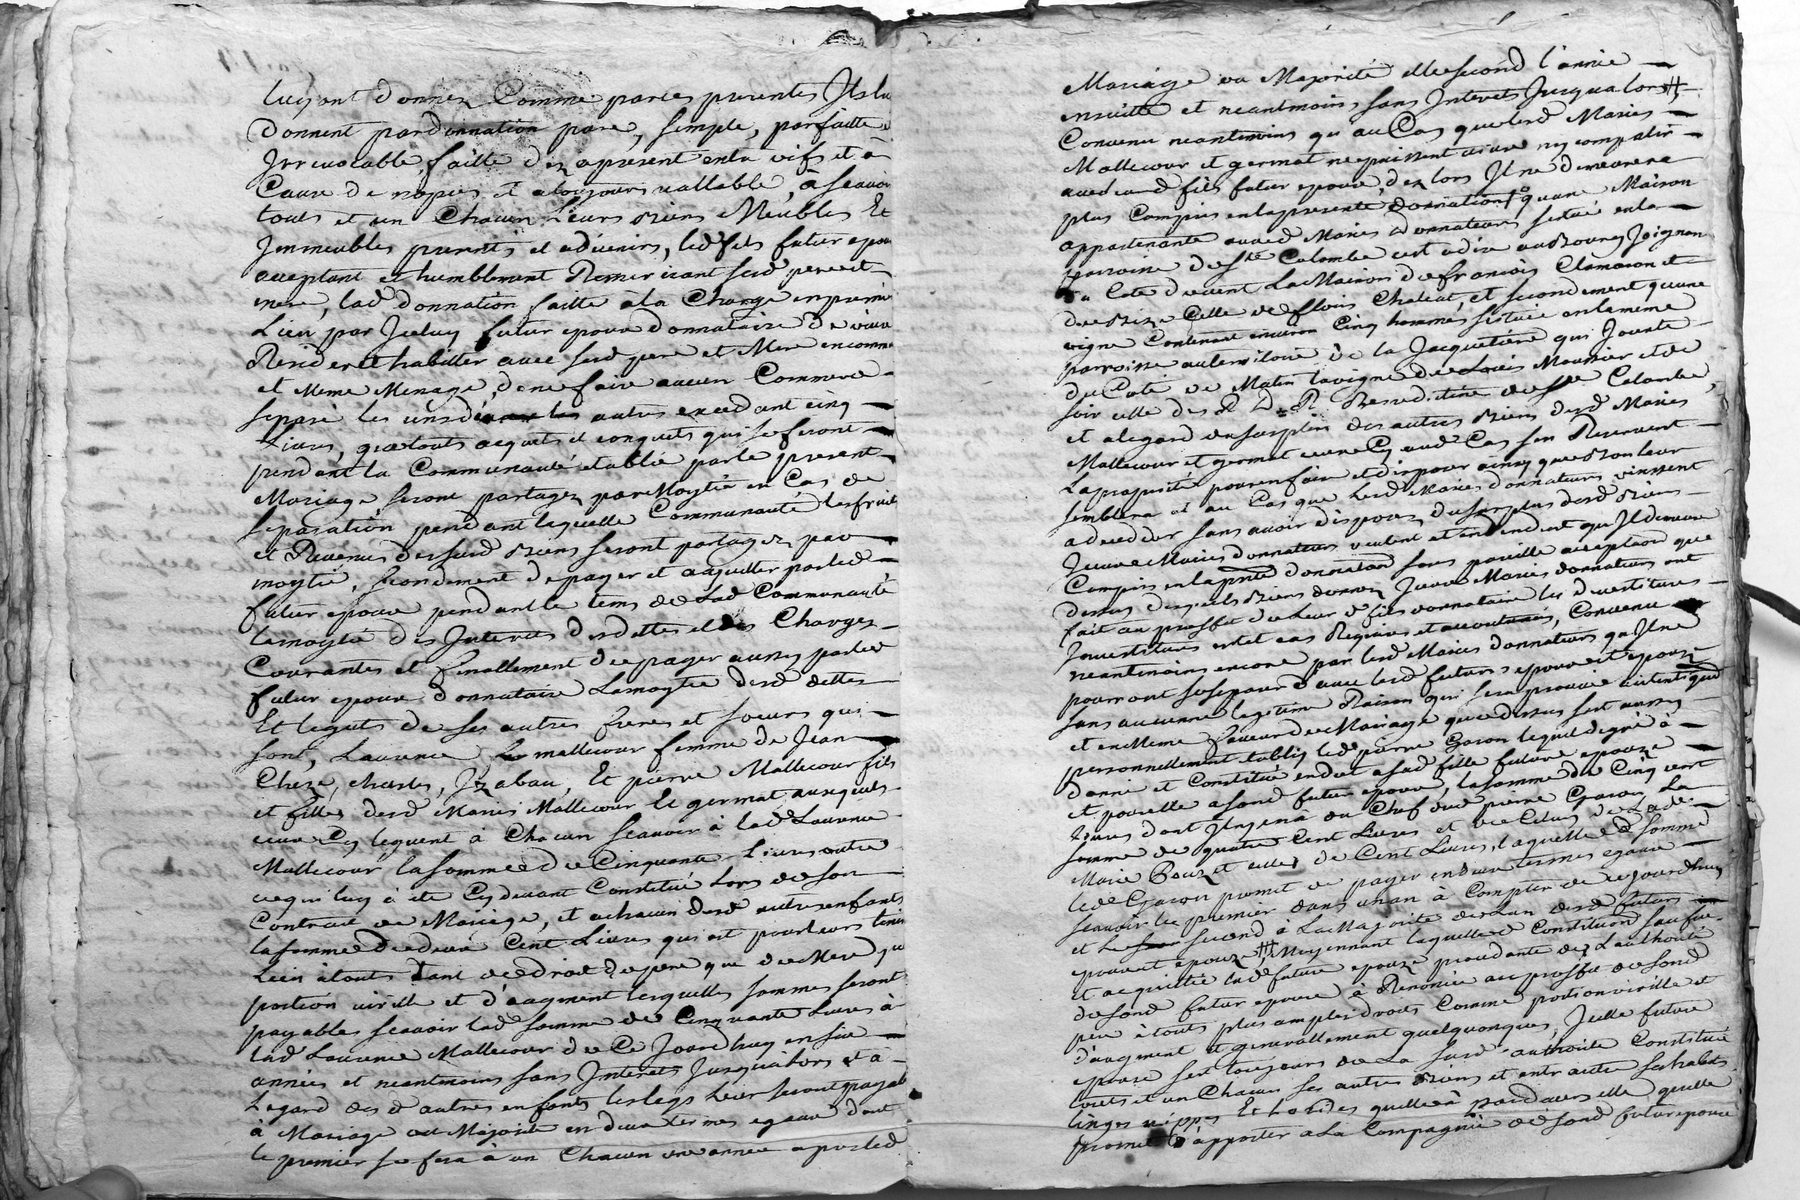 luy ont donnez Comme par ces presentes Ils lu
donnent par donnation pure, simple, parfaitte
Irrevocable, faitte dez apresent entre vifs et à
Cause de nopces et atoujours vallable, à scavoir
touts et un Chacun Leurs Biens Meubles Et
Immeubles presents et advenirs, led fils futur epou
aceptant et humblement Remerciant sesd pere et
mere, lad donnation faitte à la Charge en premier
Lieu par Iceluy futur epoux donnataire de vivre
Resider et habitter avec sesd pere et Mere en comm
et Meme Menage, de ne faire aucun Commerce
separé les uns des autres excedant cinq
Livres, que touts acquets et conquets qui se feront
pendant la Communauté etablie par le present
Mariage seront partagez par Moytié en Cas de
separation, pendant laquelle Communauté les fruit
et Revenus desesd Biens seront partagez par
moytié, secondement de payer et acquitter par led
futur epoux pendant le tems de Lad Communauté
la moytié des Interets desdettes et des Charges
Courantes et finallement de payer aussy par led
futur epoux donnataire La moytié desd dettes
Et legats de ses autres freres et soeurs qui
sont, Laurence Mallecour femme de Jean
Cheze, charles, Izabau, Et pierre Mallecour fils
et filles desd Mariés Mallecour Et germat auxquels
iceux Cy leguent à Chacun scavoir à lad Laurence
Mallecour la somme de Cinquante Livres outre
ce qui luy à eté Cy devant Constitué Lors de son
Contract de Mariage, et achacun desd autres enfants
la somme de deux Cent Livres qui est pour leurs tenir
Lieu à touts tant de droit de pere que de Mere,
portion virille et d'augment lesquelles sommes seront
payables scavoir lad somme de Cinquante Livres à
lad Laurence Mallecour de Ce Jourdhuy en six
années et neantmoins sans Interets Jusqualors et à
Legard des d autres enfants les legs Leur seront payabl
à Mariage ou Majorité en deux termes egaux dont
le premier se fera à un Chacun une année apres led
Mariage ou Majorité elle second l'année
ensuitte et neantmoins sans Interets Jusqualors #
Convenu neantmoins qu au Cas que lesd Mariés
Mallecour et germat ne puissent vivre ny compatir
avec leurd fils futur epoux, dez lors Il ne demeurera
plus Compris en la presente donnation qu une Maison
appartenante auxd Mariés donnateurs scitué en la
parroisse de Ste Colombe cest adire au Bourg Joignan
du Coté devent La Maison de francois Clamaron et
de Bize Celle de flouis Chateat, et secondement qu une
vigne Contenant environ Cinq hommés scituée en la meme
parroisse au territoire de la Jacquetiére qui Jouxte
du Coté de Matin la vigne de Louis Mounier et de
soir celle des R D R Benedictine de Ste Colombe,
et alegard du surplus des autres Biens desd Mariés
Mallecour et germat iceux Cy aud Cas s'en Reservent
La propriété pour en faire et disposer ainsy que Bon leur
semblera et au Cas que lesd Mariés donnateurs vinssent
adeceder sans avoir disposez du surplus desd Biens
Iceux Mariés donnateurs veulent et entendent qu Il demeure
Compris en la pnte donnation sous pareille aceptation que
dessus desquels Biens donnez Iceux Mariés donnateurs ont
fait au proffit de Leur d fils donnataire les devestitures
Investitures en tel cas Requises et accoutumés, Convenu
neantmoins encore par lesd Mariés donnateurs qu Il ne
pourront se separer d avec lesd futurs epoux et epouze
sans aucunne legitime Raison qui sera prouvée autentiquem
et en Meme faveur de Mariage que dessus sest aussy
personnellement etablis led pierre Garon lequel degré à
donné et Constitué en dot asad fille future epouze
et pour elle asond futur epoux, la somme de Cinq cent
Livres dont Il y en a du Chef dud pierre Garon La
somme de quatre Cent Livres et de Celuy de Lad
Marie Bouzet celle de Cent Livres, laquelle d Somme
led Garon promet de payer en deux termes egaux
scavoir le premier dans un an à Compter de ce jourdhuy
et Le second à La Majorité de lun desd futurs
epoux et epouze # Moyennant laquelle d Constitution sauf fix.
et acquittée lad future epouze procedante de L'authorité
desond futur epoux à Renoncer au proffit desond
pere à touts plus amples droits Comme portion virille et
d'augment et generallement quelquonques, Icelle future
epouze sest toujours de la susd authorité Constitué
touts et un Chacun ses autres Biens et entr autre ses habits
linges nippes Et hardes quelle à pardevers elle quelle
promet d apporter a La Compagnie desond futur epoux